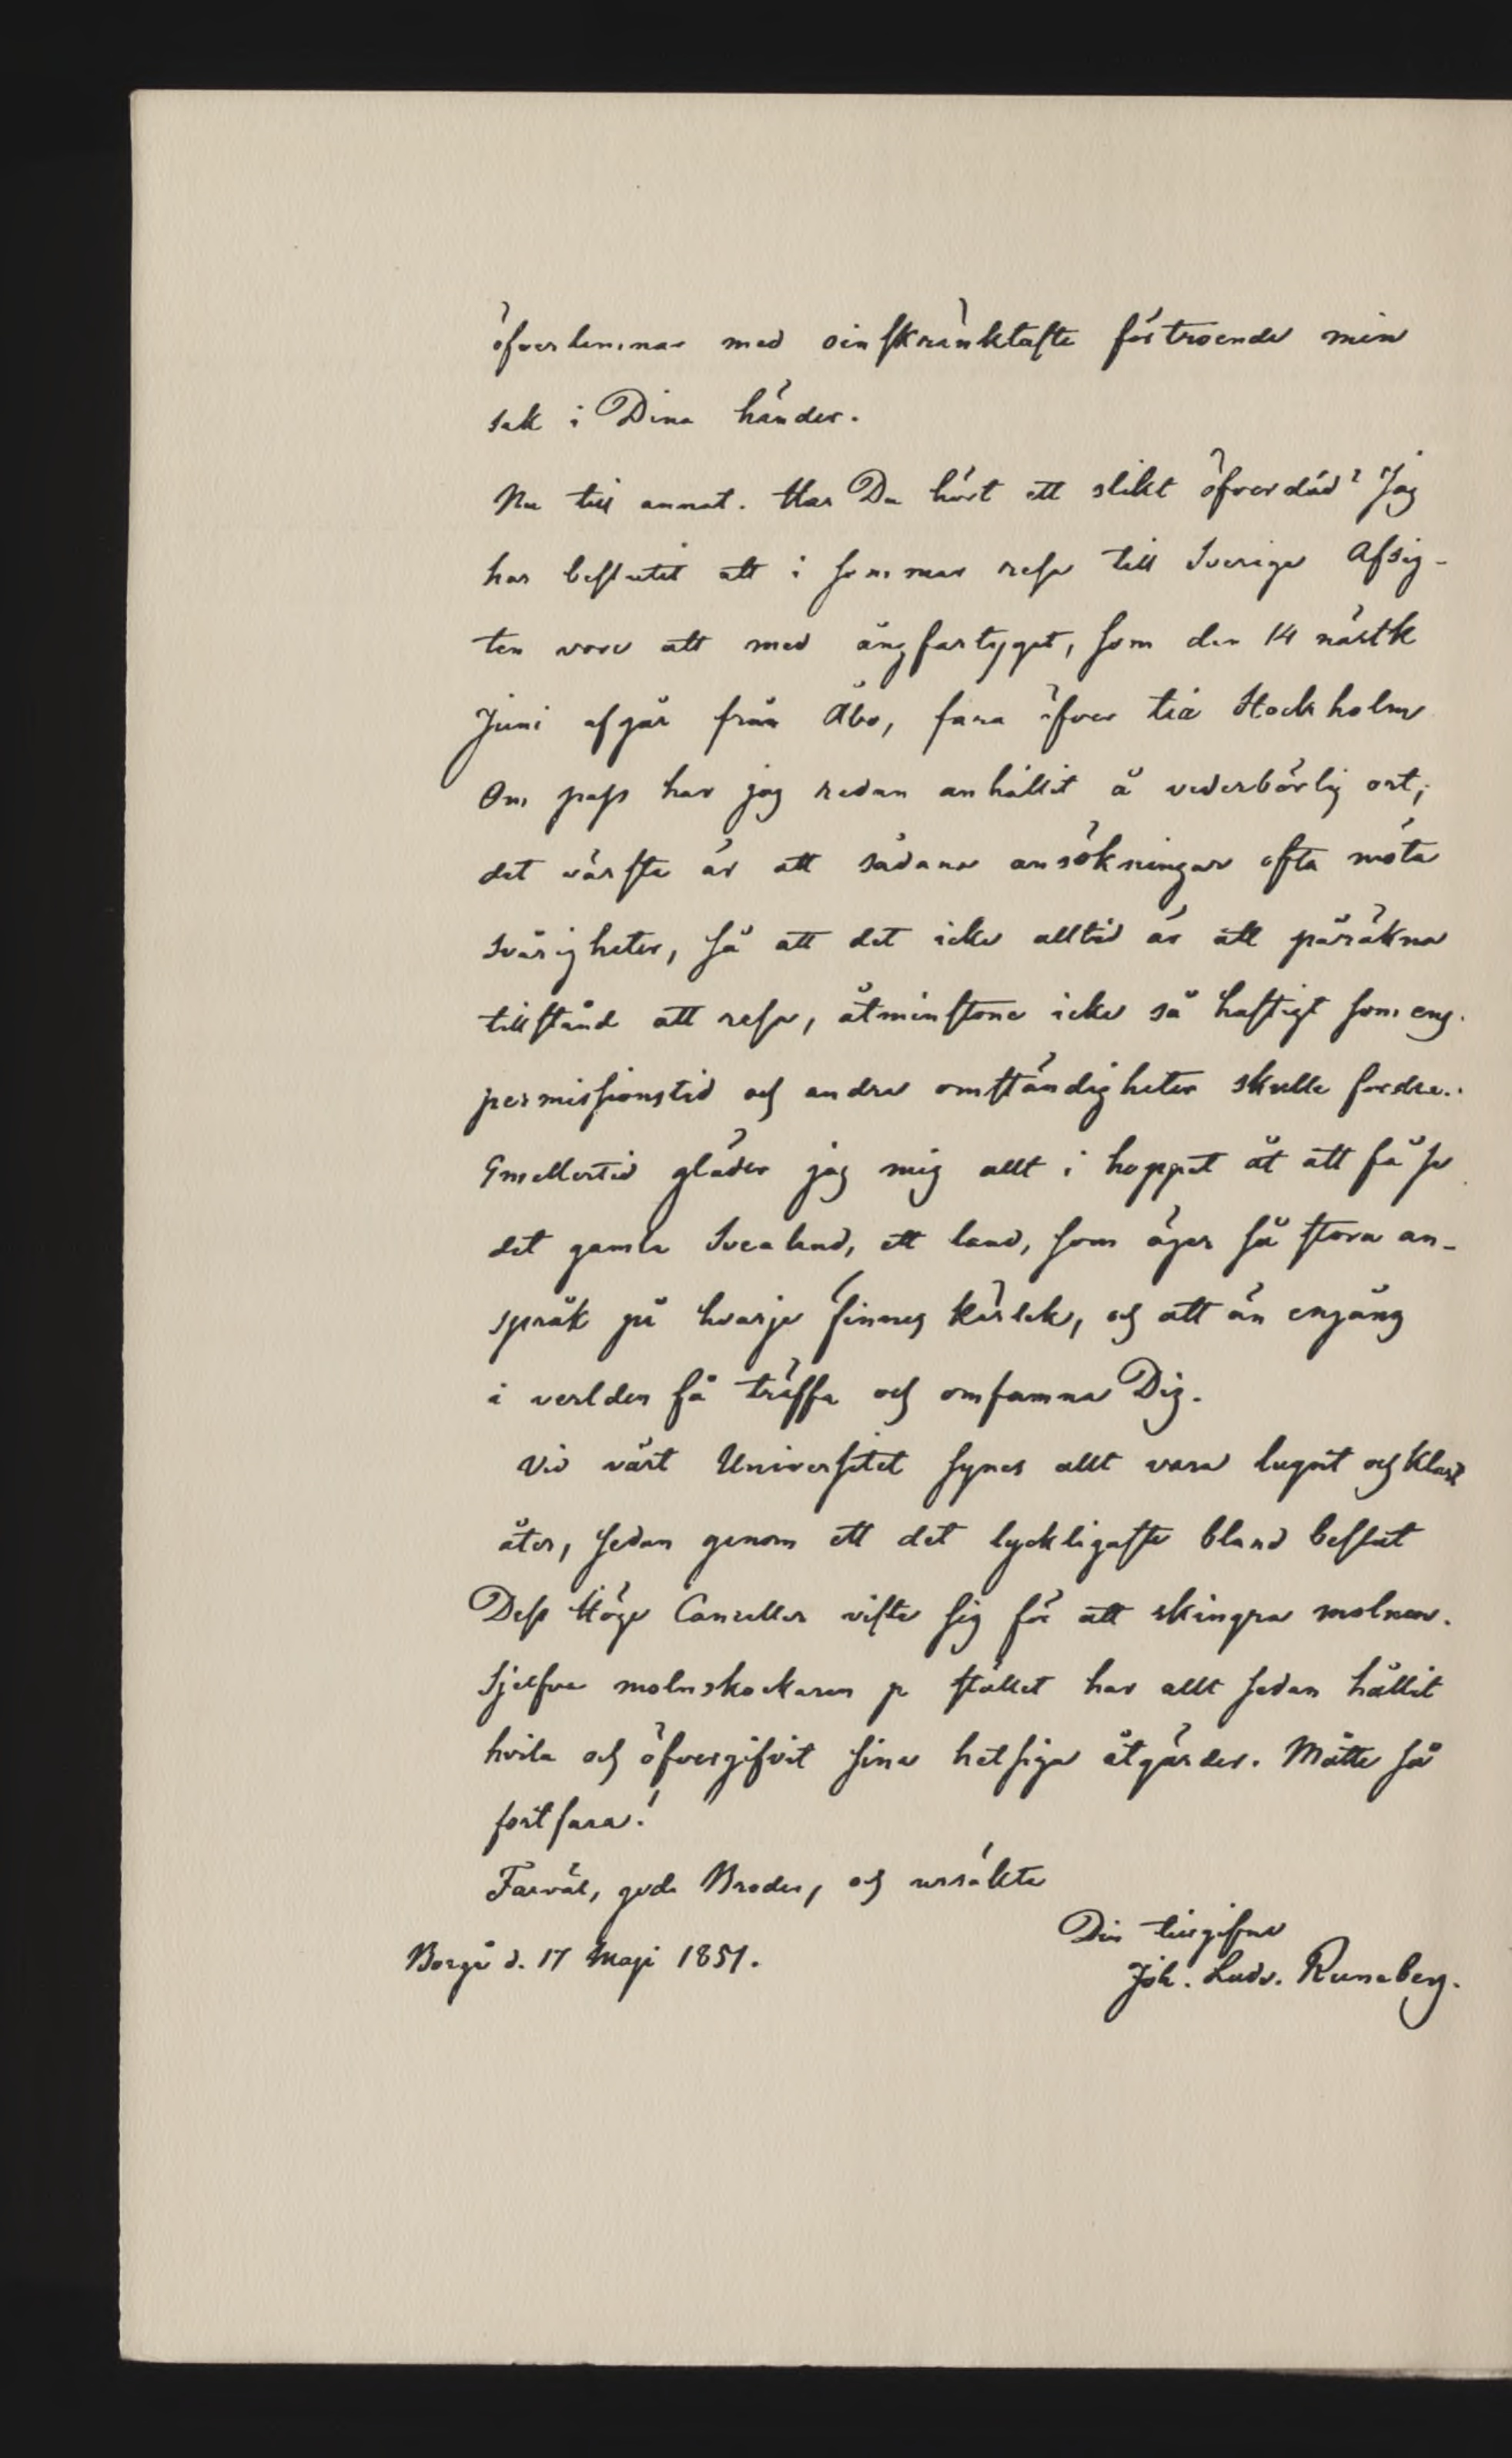 öfverlemnar med oinskränktaste förtroende min
sak i Dina händer.
Nu till annat. Har Du hört ett slikt öfverdåd? Jag
har beslutit att i sommar resa till Sverige Afsig-
ten vore att med ångfartyget, som den 14 nästk
Juni afgår från Åbo, fara öfver till Stockholm
Om pass har jag redan anhållit å vederbörlig ort;
det värsta är att sådana ansökningar ofta möta
svårigheter, så att det icke alltid är att påräkna
tillstånd att resa, åtminstone icke så hastigt som
permissionstid och andra omständigheter skulle fordra.
Emellertid gläder jag mig allt i hoppet åt att få se
det gamla Svealand, ett land, som äger så stora an-
språk på hvarje finnes kärlek, och att än engång
i verlden få träffa och omfamna Dig.
Vid vårt Universitet synes allt vara lugnt och klart
åter, sedan genom ett det lyckligaste bland beslut
Dess Höge Canceller viste sig för att skingra molnen.
Sjelfva molnskockaren på stället har allt sedan hållit
hvila och öfvergifvit sina hetsiga åtgärder. Måtte så
fortfara!
Farväl, gode Broder, och ursäkta
Din tillgifne
Borgå d. 17 Maji 1851.
Joh. Ludv. Runeberg.